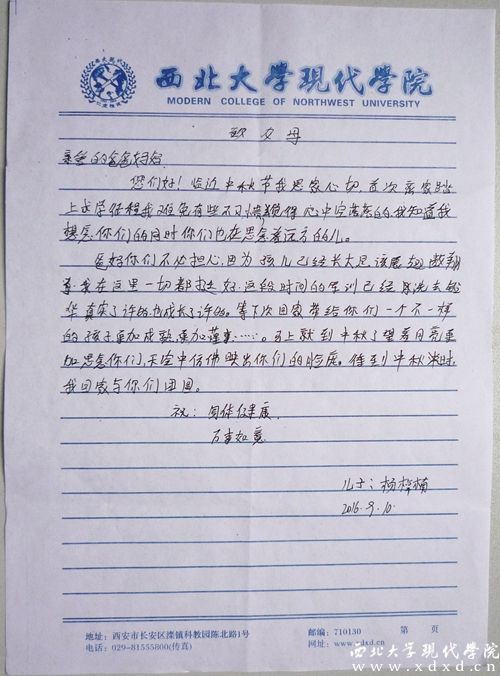 西北大学现代学院
MODERN COLLEGE OF NORTHWEST UNIVERSITY
致父母
亲爱的爸爸妈妈
您们好！临近中秋节我思家心切，首次离家踏
上求学征程我难免有些不习惯觉得心中空荡荡的我知道我
想念你们的同时你们也在思念着远方的儿。
爸妈你们不必担心，因为孩儿已经长大是该展翅翱翔
我在这里一切都挺好，这段时间的军训已经
真实了许多，也成长了许多。等下次回家带给你们一个不一样
的孩子更加成熟，更加谨……。马上就到中秋了望着月亮更
加思念你们，天空中仿佛映出你们的脸庞。待到中秋
我回家与你们团圆。
祝：身体健康，
万事如意
儿子：杨梓楠
2016.9.10.
地址：西安市长安区滦镇科教园陈北路1号 邮编：710130 第 页
电话：029-81555800(传真) 网址：www.xdxd.cn
西北大学现代学院
www.xdxd.cn